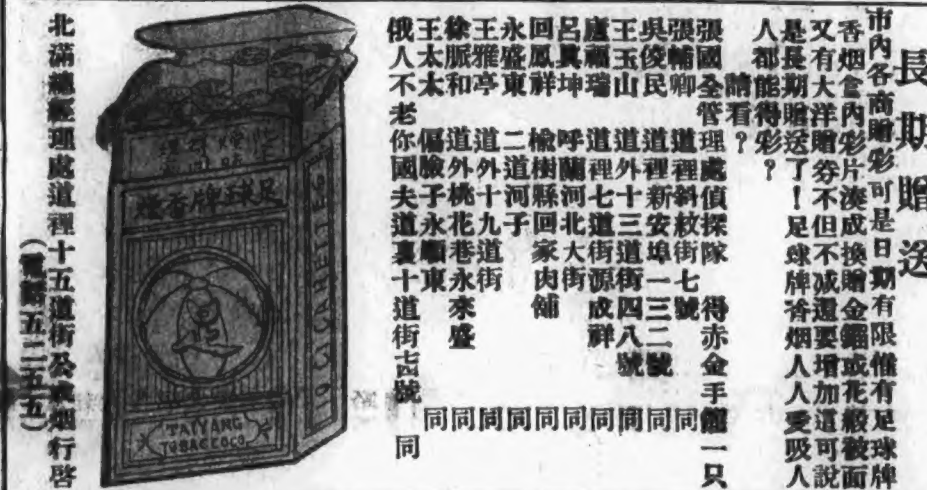 長期贈送
市內各商贈彩可是日期有限惟有足球牌
香烟盒內彩片湊成換贈金鐲或花緞被面
又有大洋贈券不但不减還要增加這可說
是長期贈送了！足球牌香烟人人愛吸人
人都能得彩？
請看？
張國全管理處偵探隊 得赤金手鐲一只
張輔卿 道裡斜紋街七號 同
吳俊民 道裡新安埠一三二號 同
王玉山 道外十三道街四八號 同
盧福瑞 道裡七道街源成祥 同
呂真坤 呼蘭河北大街 同
回鳳祥 榆樹縣回家肉舖 同
永盛東 二道河子 同
王雅亭 道外十九道街 同
徐脈和 道外桃花巷永來盛 同
王太太 偏臉子永順東 同
俄人不老你國夫道裏十道街 號 同
足球牌香煙
TAIYANG
TOBACCO CO.
北滿總經理處道裡十五道街公 烟行啓
（電話五二五五）